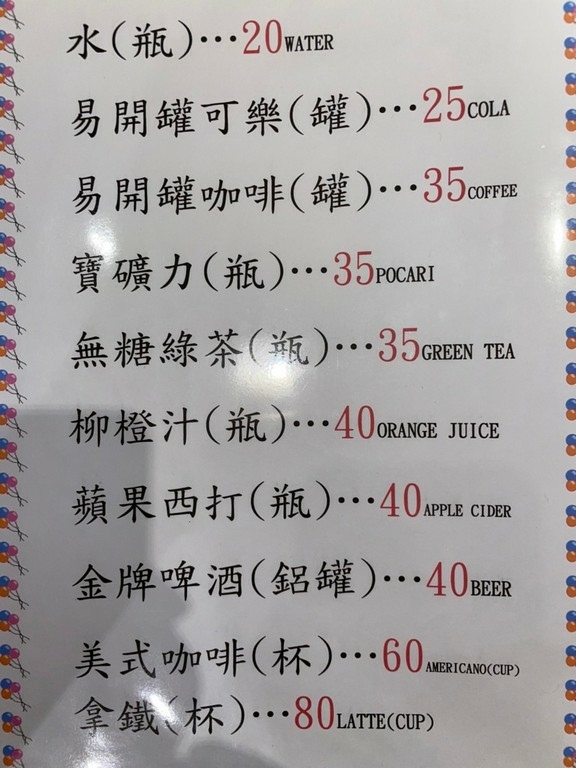 水(瓶)…20WATER
易開罐可樂(罐)…25COLA
易開罐咖啡(罐)…35COFFEE
寶礦力(瓶)…35POCARI
無糖綠茶(瓶)…35GREEN TEA
柳橙汁(瓶)…40ORANGE JUICE
蘋果西打(瓶)…40APPLE CIDER
金牌啤酒(鋁罐)…40BEER
美式咖啡(杯)…60AMERICANO(CUP)
拿鐵(杯)…80LATTE(CUP)